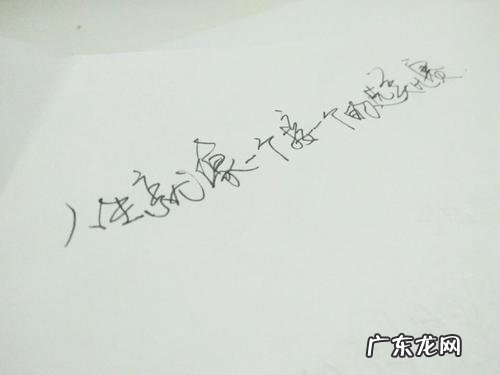 人生就像一个接一个的选择赛
广东龙网